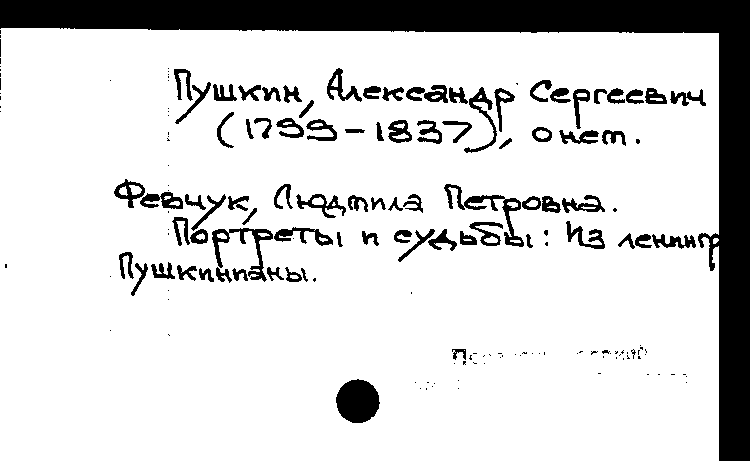 Пушкин, Александр Сергеевич
(1799-1837), о нем.
Февчук, Людмила Петровна.
Портреты и судьбы: Из ленингр
Пушкинианы.